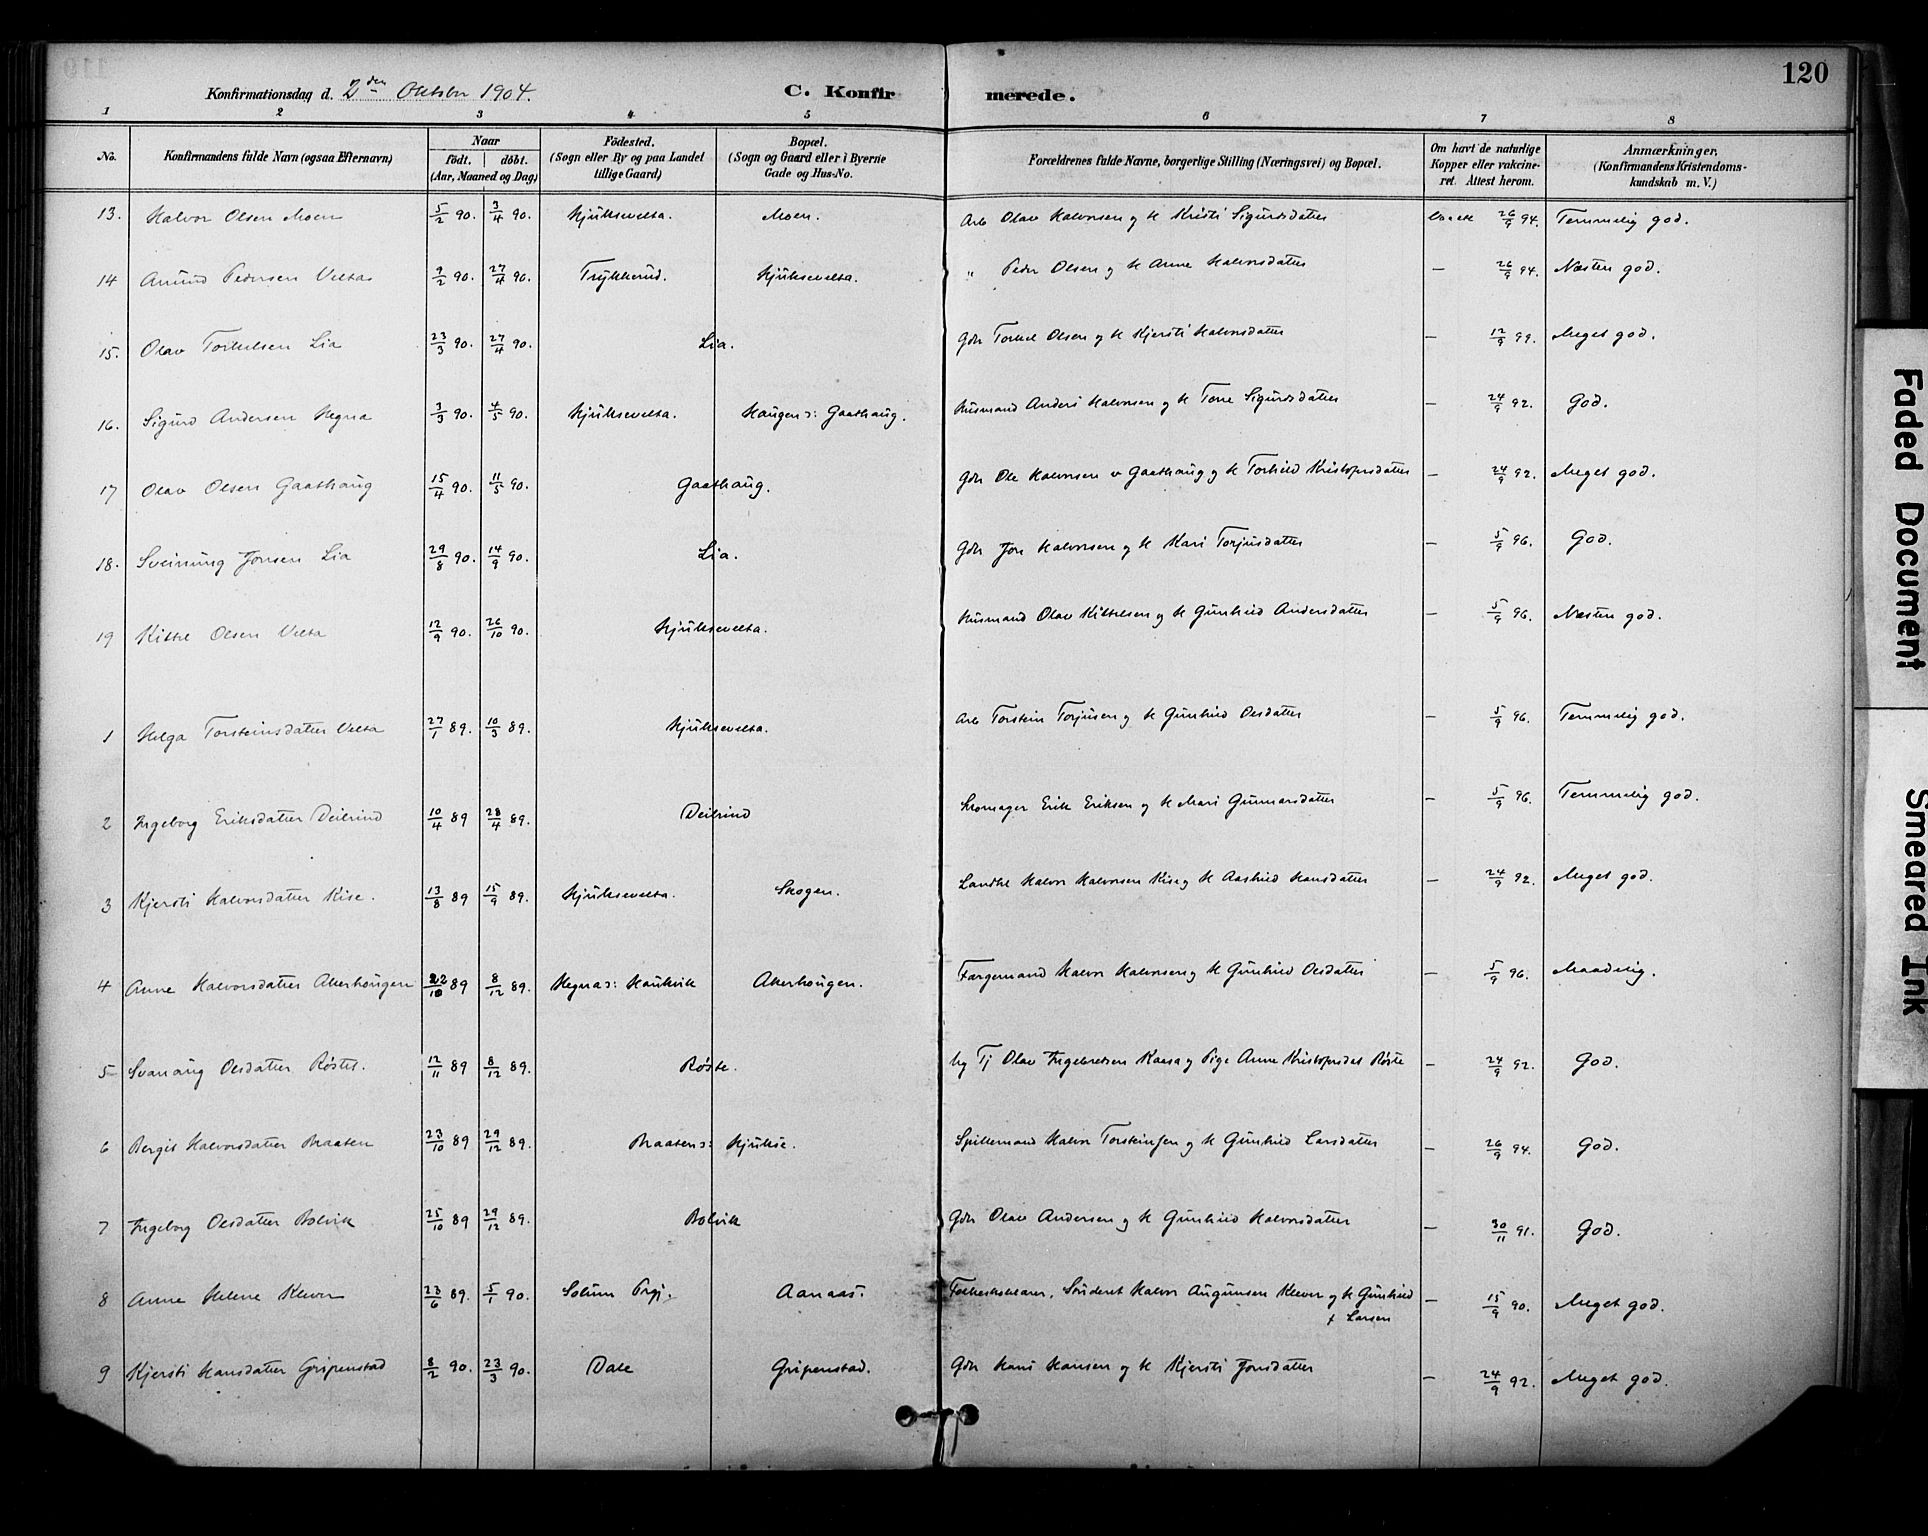 120
Konfirmationsdag d. 2den Oktober 1904.
C. Konfirmerede.
1 2 3 4 5 6 7 8
No. Konfirmandens fulde Navn (ogsaa Efternavn) Naar födt. döbt. (Aar, Maaned og Dag) Födested. (Sogn eller By og paa Landet tillige Gaard) Bopæl. (Sogn og Gaard eller i Byerne Gade og Hus-No. Forældrenes fulde Navne, borgerlige Stilling (Næringsvei) og Bopæl. Om havt de naturlige Kopper eller vakcineret. Attest herom. Anmærkninger, (Konfirmandens Kristendomskundskab m. V.)
13. Halvor Olsen Moen 5/2 90. 3/4 90. Hjuksevelta. Moen. Arb Olav Halvorsen og H Kristi Sigurdsdatter 26/9 94. Temmelig god.
14 Amund Pedersen Velta 9/2 90. 27/4 90. Trykkerud. Hjuksevelta. " Peder Olsen og H Anne Halvorsdatter – 26/9 94. Næsten god.
15. Olav Torkelsen Lia 23/3 90. 27/4 90. Lia. Gdr Torkel Olsen og H Kjersti Halvorsdatter – 12/9 99. Meget god.
16. Sigurd Andersen Hegna 3/3 90. 4/5 90. Hjuksevelta. Haugen ɔ: Gaathaug. Husmand Anders Halvorsen og H Tone Sigurdsdatter – 24/9 92. God.
17 Olav Olsen Gaathaug 15/4 90. 11/5 90. Gaathaug. Gdr Ole Halvorsen v Gaathaug og H Torhild Kristofersdatter – 24/9 92. Meget god.
18. Sveinung Jonsen Lia 29/8 90. 14/9 90. Lia. Gdr Jon Halvorsen og H Kari Torjusdatter – 5/9 96. God.
19 Kittel Olsen Velta 12/9 90. 26/10 90. Hjuksevelta. Husmand Olav Kittelsen og H Gunhild Andersdatter – 5/9 96. Næsten god.
1 Helga Torsteinsdatter Velta 27/1 89. 10/3 89. Hjuksevelta. Arb Torstein Torjusen og H Gunhild Olsdatter – 5/9 96. Temmelig god.
2 Ingeborg Eriksdatter Deilrind 10/4 89 28/4 89. Deilrind Skomager Erik Eriksen og H Mari Gunnarsdatter – 5/9 96. Temmelig god.
3 Kjersti Halvorsdatter Kise. 13/8 89 15/9 89. Hjuksevelta. Skogen. Landhl Halvor Halvorsen Kise og H Aashild Hansdatter – 24/9 92. Meget god.
4 Anne Halvorsdatter Akerhougen 22/10 89 8/12 89. Hegna ɔ: Haukvik Akerhougen. Færgemand Halvor Halvorsen og H Gunhild Olsdatter – 5/9 96. Maadelig.
5 Svanaug Olsdatter Röste. 12/11 89 8/12 89. Röste. Ug Tj Olav Ingebretsen Kaasa og Pige Anne Kristofersdat Röste – 24/9 92. God.
6 Bergit Halvorsdatter Braaten 23/10 89 29/12 89. Braaten ɔ: Hjukse. Spillemand Halvor Torsteinsen og H Gunhild Larsdatter – 26/9 94. God.
7 Ingeborg Olsdatter Bolvik 25/10 89 29/12 89. Bolvik Gdr Olav Andersen og H Gunhild Halvorsdatter – 30/11 91. God.
8 Anne Helene Klever 23/6 89. 5/1 90. Solum Prgj. Aanaas. Sönderet Halvor Augunsen Klever og H Gunhild – 15/9 90. Meget god.
f Larsen
9 Kjersti Hansdatter Gripenstad 8/2 90. 23/3 90. Dale Gripenstad. Gdr Hans Hansen og H Kjersti Jonsdatter – 24/9 92. Meget god.
Faded Document
Smeared Ink